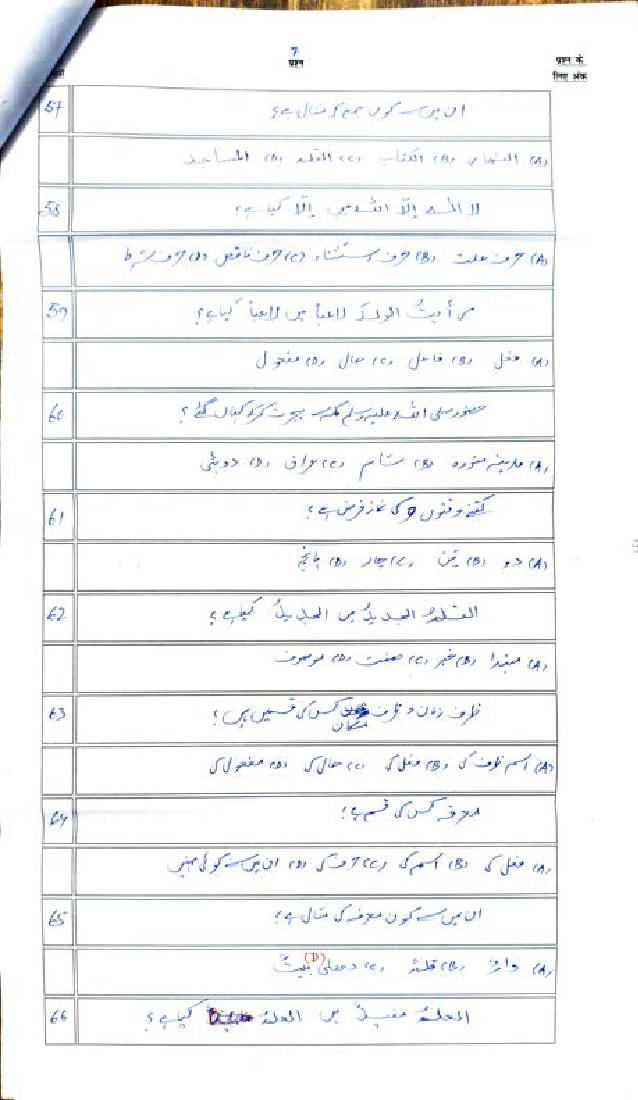 7
प्रश्न
प्रश्न के
लिए अंक
57 ان میں سے کون جمع کی مثال ہے؟
(A) النهار (B) الكتاب (C) القلم (D) المساجد
58 لا الٰہ إلّا اللہ میں إلّا کیا ہے؟
(A) حرف علت (B) حرف استثناء (C) حرف ناقص (D) حرف شرط
59 رأيتُ الولدَ لاعباً میں لاعباً کیا ہے؟
(A) فعل (B) فاعل (C) حال (D) مفعول
60 حضور صلی اللہ علیہ وسلم مکہ سے ہجرت کرکے کہاں گئے؟
(A) مدینہ منورہ (B) شام (C) عراق (D) دوبئی
61 کتنے وقتوں کی نماز فرض ہے؟
(A) دو (B) تین (C) چار (D) پانچ
62 القلمُ الجديدُ میں الجديدُ کیا ہے؟
(A) مبتدا (B) خبر (C) صفت (D) موصوف
63 ظرف زمان و ظرف مکان کس کی قسمیں ہیں؟
(A) اسم ظرف کی (B) فعل کی (C) حال کی (D) مفعول کی
64 معرفہ کس کی قسم ہے؟
(A) فعل کی (B) اسم کی (C) حرف کی (D) ان میں سے کوئی نہیں
65 ان میں سے کون معرفہ کی مثال ہے؟
(A) دارٌ (B) قلمٌ (C) دھلی (D) بيتٌ
66 العلمُ مفيدٌ میں العلمُ کیا ہے؟